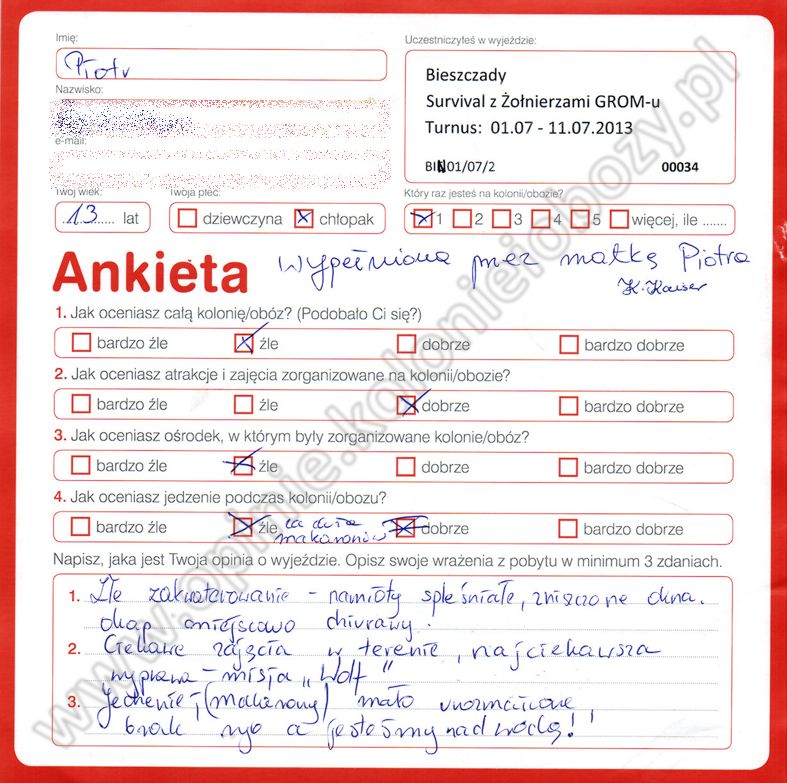 Imię:
Piotr
Nazwisko:
e-mail:
Uczestniczyłeś w wyjeździe:
Bieszczady
Survival z Żołnierzami GROM-u
Turnus: 01.07 - 11.07.2013
BIN01/07/2 00034
Twój wiek:
13 lat
Twoja płeć:
dziewczyna x chłopak
Który raz jesteś na kolonii/obozie?
x 1 2 3 4 5 więcej, ile .......
Ankieta wypełniona przez matkę Piotra
K. Kaiser
1. Jak oceniasz całą kolonię/obóz? (Podobało Ci się?)
bardzo źle x źle dobrze bardzo dobrze
2. Jak oceniasz atrakcje i zajęcia zorganizowane na kolonii/obozie?
bardzo źle źle x dobrze bardzo dobrze
3. Jak oceniasz ośrodek, w którym były zorganizowane kolonie/obóz?
bardzo źle x źle dobrze bardzo dobrze
4. Jak oceniasz jedzenie podczas kolonii/obozu?
bardzo źle x źle za dużo makaronów x dobrze bardzo dobrze
Napisz, jaka jest Twoja opinia o wyjeździe. Opisz swoje wrażenia z pobytu w minimum 3 zdaniach.
1. Złe zakwaterowanie - namioty spleśniałe, zniszczone okna.
okap miejscowo dziurawy.
2. Ciekawe zajęcia w terenie, najciekawsza
wyprawa - misja "Wolf"
3. Jedzenie - (makarony) mało urozmaicone,
brak ryb a jesteśmy nad wodą!!
www.opinie.kolonieiobozy.pl